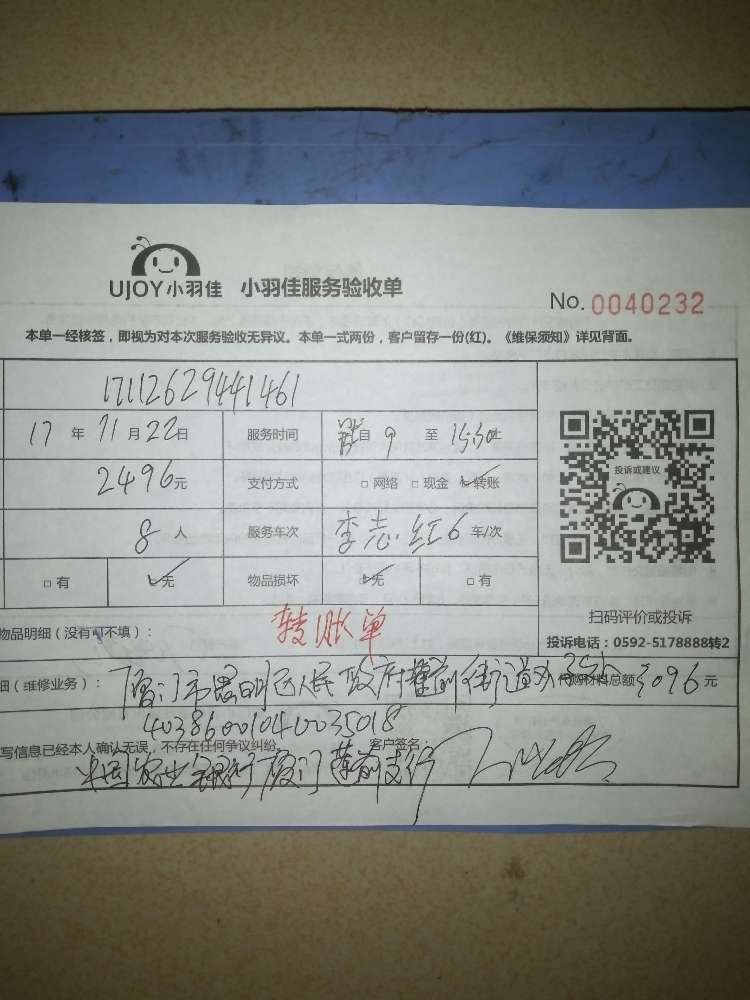 UJOY小羽佳 小羽佳服务验收单
No. 0040232
本单一经核签，即视为对本次服务验收无异议。本单一式两份，客户留存一份(红)。《维保须知》详见背面。
17112629441461
17 年 11 月 22 日 服务时间 自 9 至 15:30止
2496元 支付方式 □ 网络 □ 现金 □ 转账
投诉或建议
8 人 服务车次 李志红6 车/次
□ 有 □ 无 物品损坏 □ 无 □ 有
扫码评价或投诉
物品明细（没有可不填）： 转账单
投诉电话：0592-5178888转2
细（维修业务）： 厦门市思明区人民政府莲前街道办 材料总额 元
40386001040035018
写信息已经本人确认无误，不存在任何争议纠纷。 客户签名：
中国农业银行厦门莲前支行